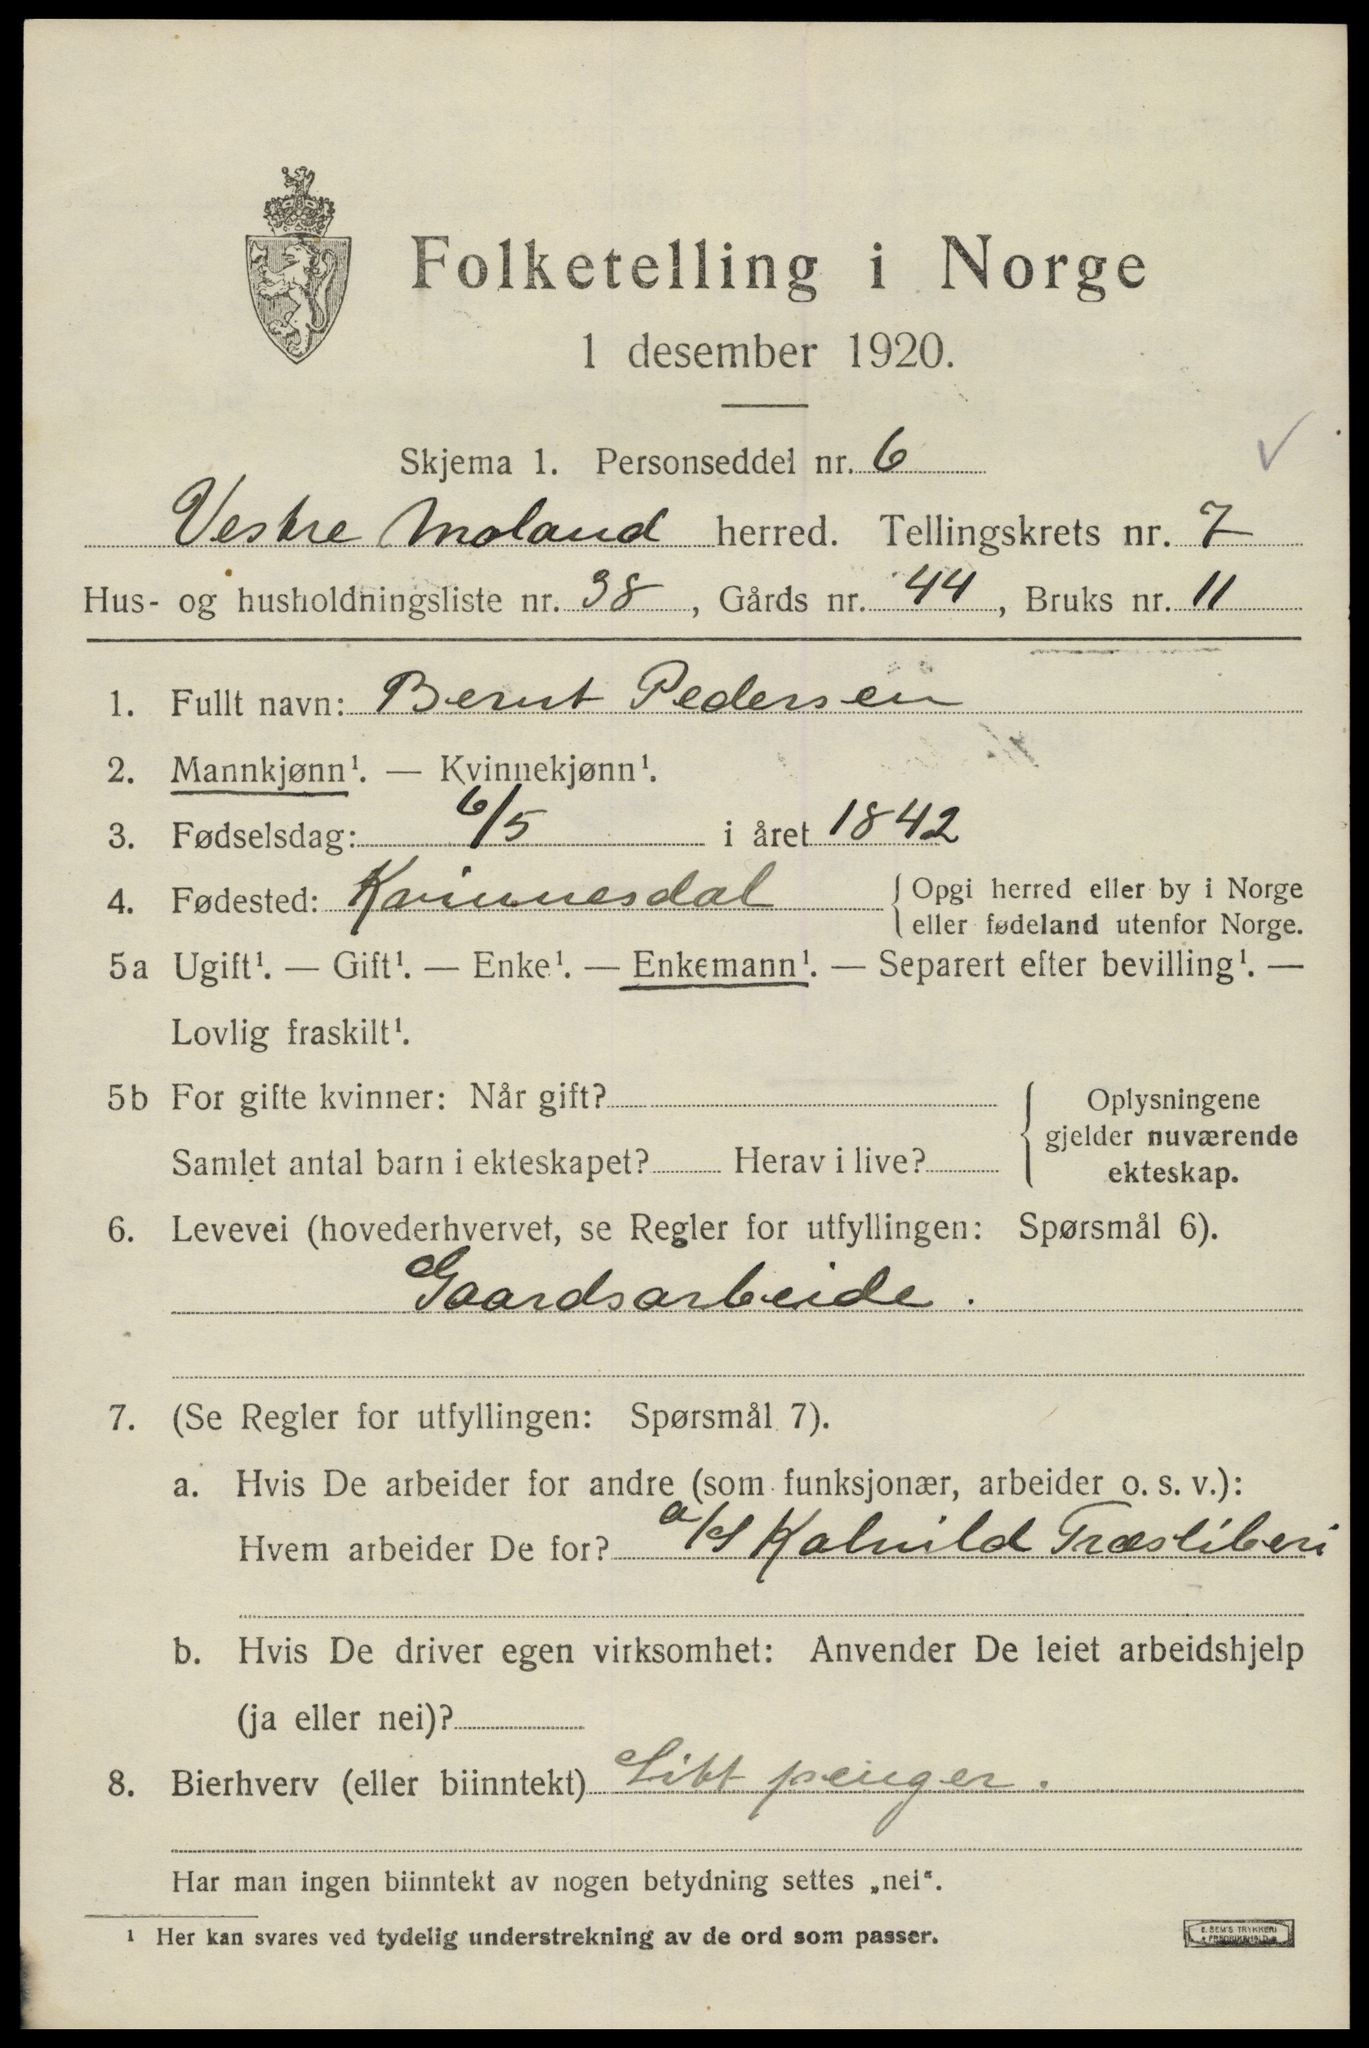 Folketelling i Norge
1 desember 1920.
Skjema 1. Personseddel nr. 6
Vestre Moland herred. Tellingskrets nr. 7
Hus- og husholdningsliste nr. 38, Gårds nr. 44, Bruks nr. 11
1. Fullt navn: Bernt Pedersen
2. Mannkjønn¹. — Kvinnekjønn¹.
3. Fødselsdag: 6/5 i året 1842
4. Fødested: Kvinnesdal { Opgi herred eller by i Norge
eller fødeland utenfor Norge.
5a Ugift¹. — Gift¹. — Enke¹. — Enkemann¹. — Separert efter bevilling¹. —
Lovlig fraskilt¹.
5b For gifte kvinner: Når gift?
Samlet antal barn i ekteskapet? Herav i live?
Oplysningene
gjelder nuværende
ekteskap.
6. Levevei (hovederhvervet, se Regler for utfyllingen: Spørsmål 6).
Gaardsarbeide.
7. (Se Regler for utfyllingen: Spørsmål 7).
a. Hvis De arbeider for andre (som funksjonær, arbeider o. s. v.):
Hvem arbeider De for? a/s Kalvild Træsliberi
b. Hvis De driver egen virksomhet: Anvender De leiet arbeidshjelp
(ja eller nei)?
8. Bierhverv (eller biinntekt) Litt penger.
Har man ingen biinntekt av nogen betydning settes „nei“.
¹ Her kan svares ved tydelig understrekning av de ord som passer.
E. SEM'S TRYKKERI
FREDRIKSHALD